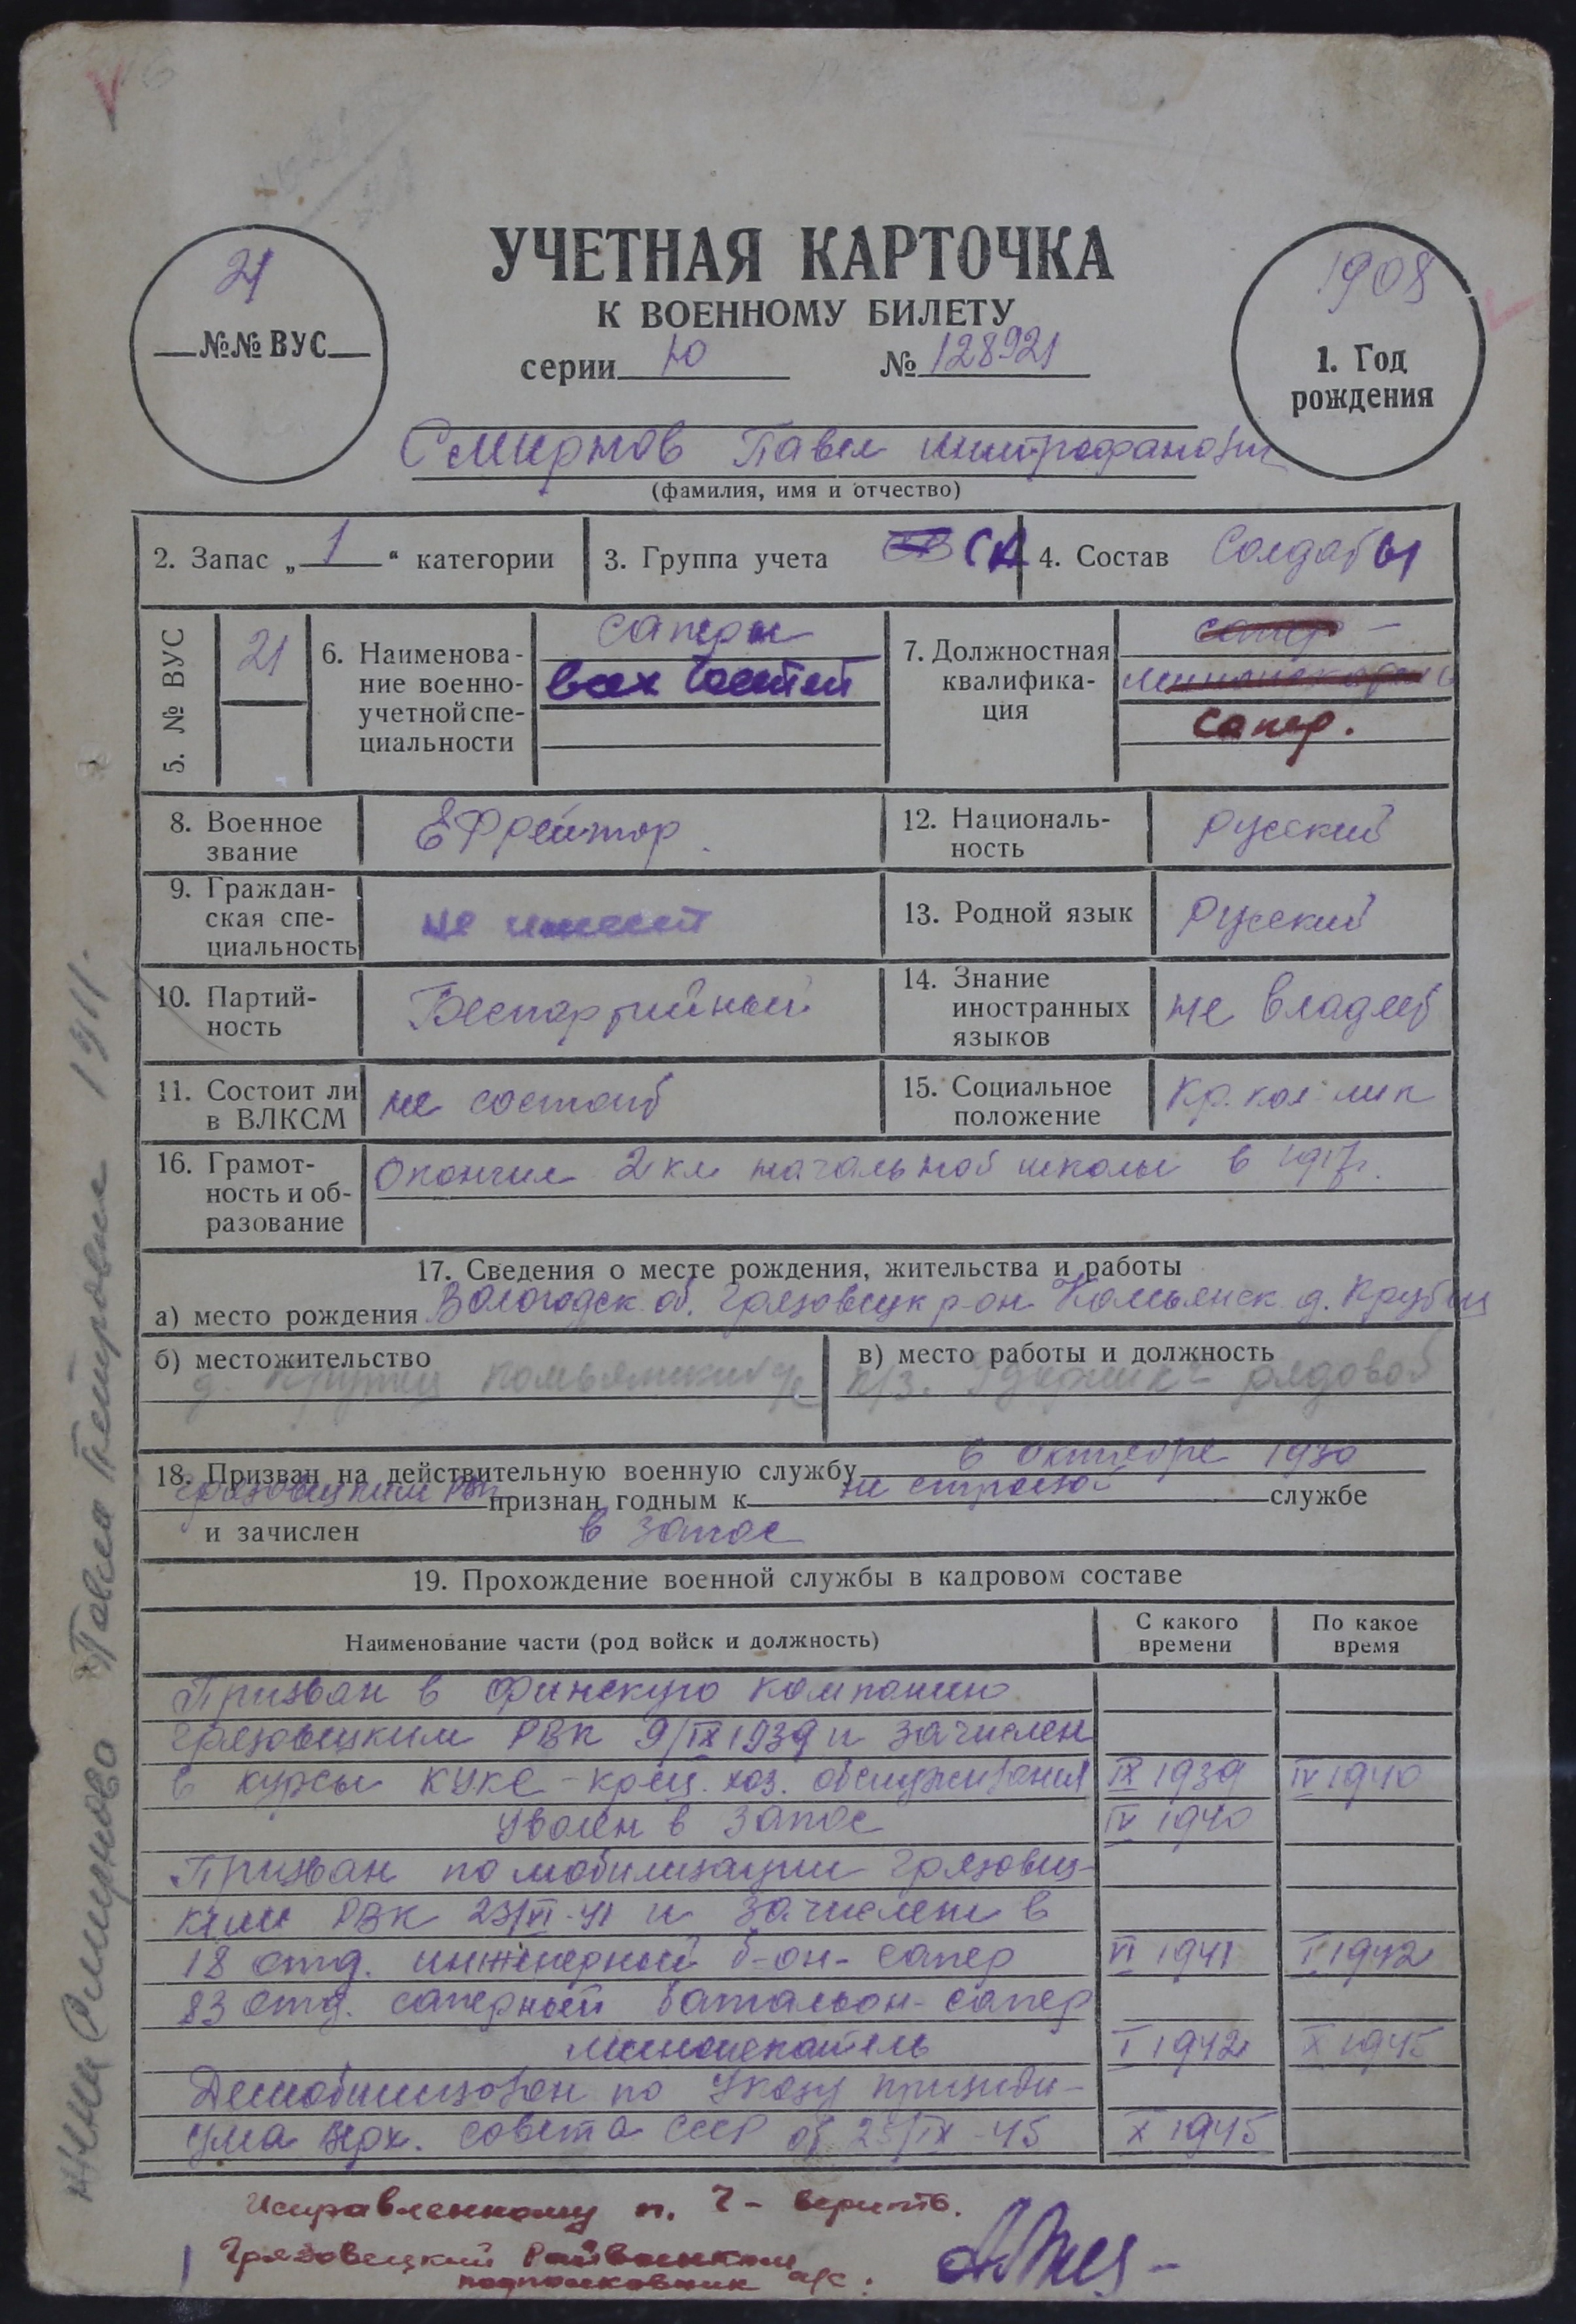 УЧЕТНАЯ КАРТОЧКА
К ВОЕННОМУ БИЛЕТУ
серии Ю № 128921
21
№№ ВУС
1908
1. Год
рождения
Смирнов Павел Митрофанович
(фамилия, имя и отчество)
2. Запас „ 1 “ категории
3. Группа учета СА
4. Состав Солдаты
5. № ВУС 21
6. Наименова-
ние военно-
учетной спе-
циальности
саперы
всех частей
7. Должностная
квалифика-
ция
сапер
миноискатель
сапер.
8. Военное
звание
Ефрейтор
12. Националь-
ность
Русский
9. Граждан-
ская спе-
циальность
не имеет
13. Родной язык
Русский
10. Партий-
ность
Беспартийный
14. Знание
иностранных
языков
не владеет
11. Состоит ли
в ВЛКСМ
не состоит
15. Социальное
положение
Кр. кол-ник
16. Грамот-
ность и об-
разование
Окончил 2 кл начальной школы в 1917г.
17. Сведения о месте рождения, жительства и работы
а) место рождения Вологодск. об. Грязовецк р-он Комьянск д.
б) местожительство
д. Крутец Комьянский с/с
в) место работы и должность
к/з. рядовой
18. Призван на действительную военную службу в октябре 1930
Грязовецким РВК признан годным к не строевой службе
и зачислен в запас
19. Прохождение военной службы в кадровом составе
Наименование части (род войск и должность)
С какого
времени
По какое
время
Призван в Финскую компанию
Грязовецким РВК 9/IX 1939 и зачислен
в курсы КУКС - хоз. обслуживания IX 1939 IV 1940
Уволен в запас IV 1940
Призван по мобилизации Грязовец-
ким РВК 23/VI-41 и зачислен в
18 отд. инженерный б-он - сапер VI 1941 I 1942
83 отд. саперный батальон - сапер
миноискатель I 1942 X 1945
Демобилизован по Указу президи-
ума Верх. совета СССР от 25/IX-45 X 1945
Исправленному п. 7 - верить.
Грязовецкий Райвоенком
подполковник а/с:
жена Смирнова Павла Петровна 1911.